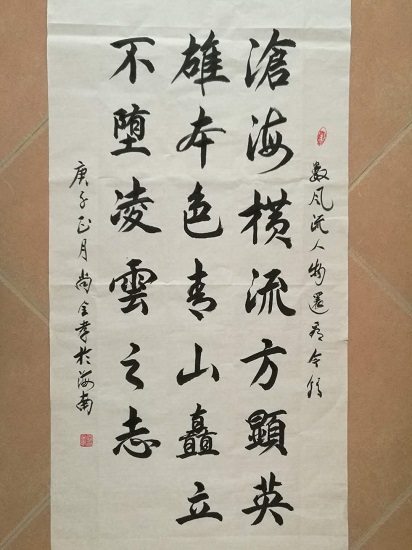 数风流人物還看今朝
滄海横流方顯英
雄本色青山矗立
不堕凌雲之志
庚子正月尚全孝於海南